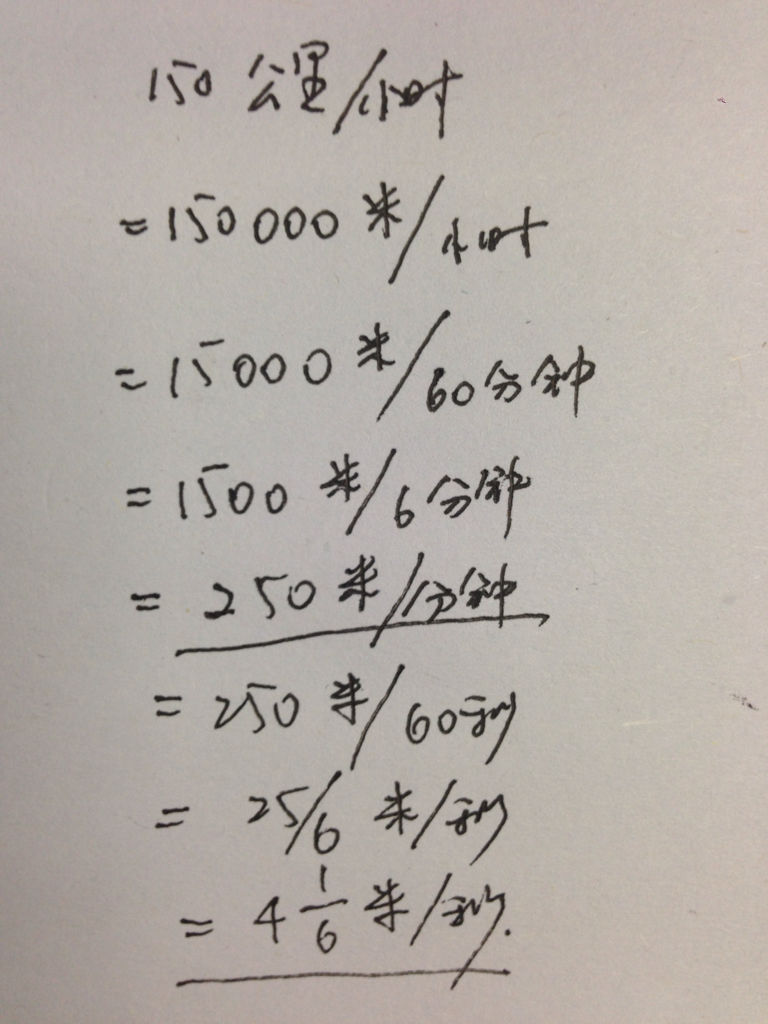 150 公里/小时
=150000 米/小时
=15000 米/60分钟
=1500 米/6分钟
=250 米/分钟
=250 米/60秒
=25/6 米/秒
=4 1/6 米/秒.